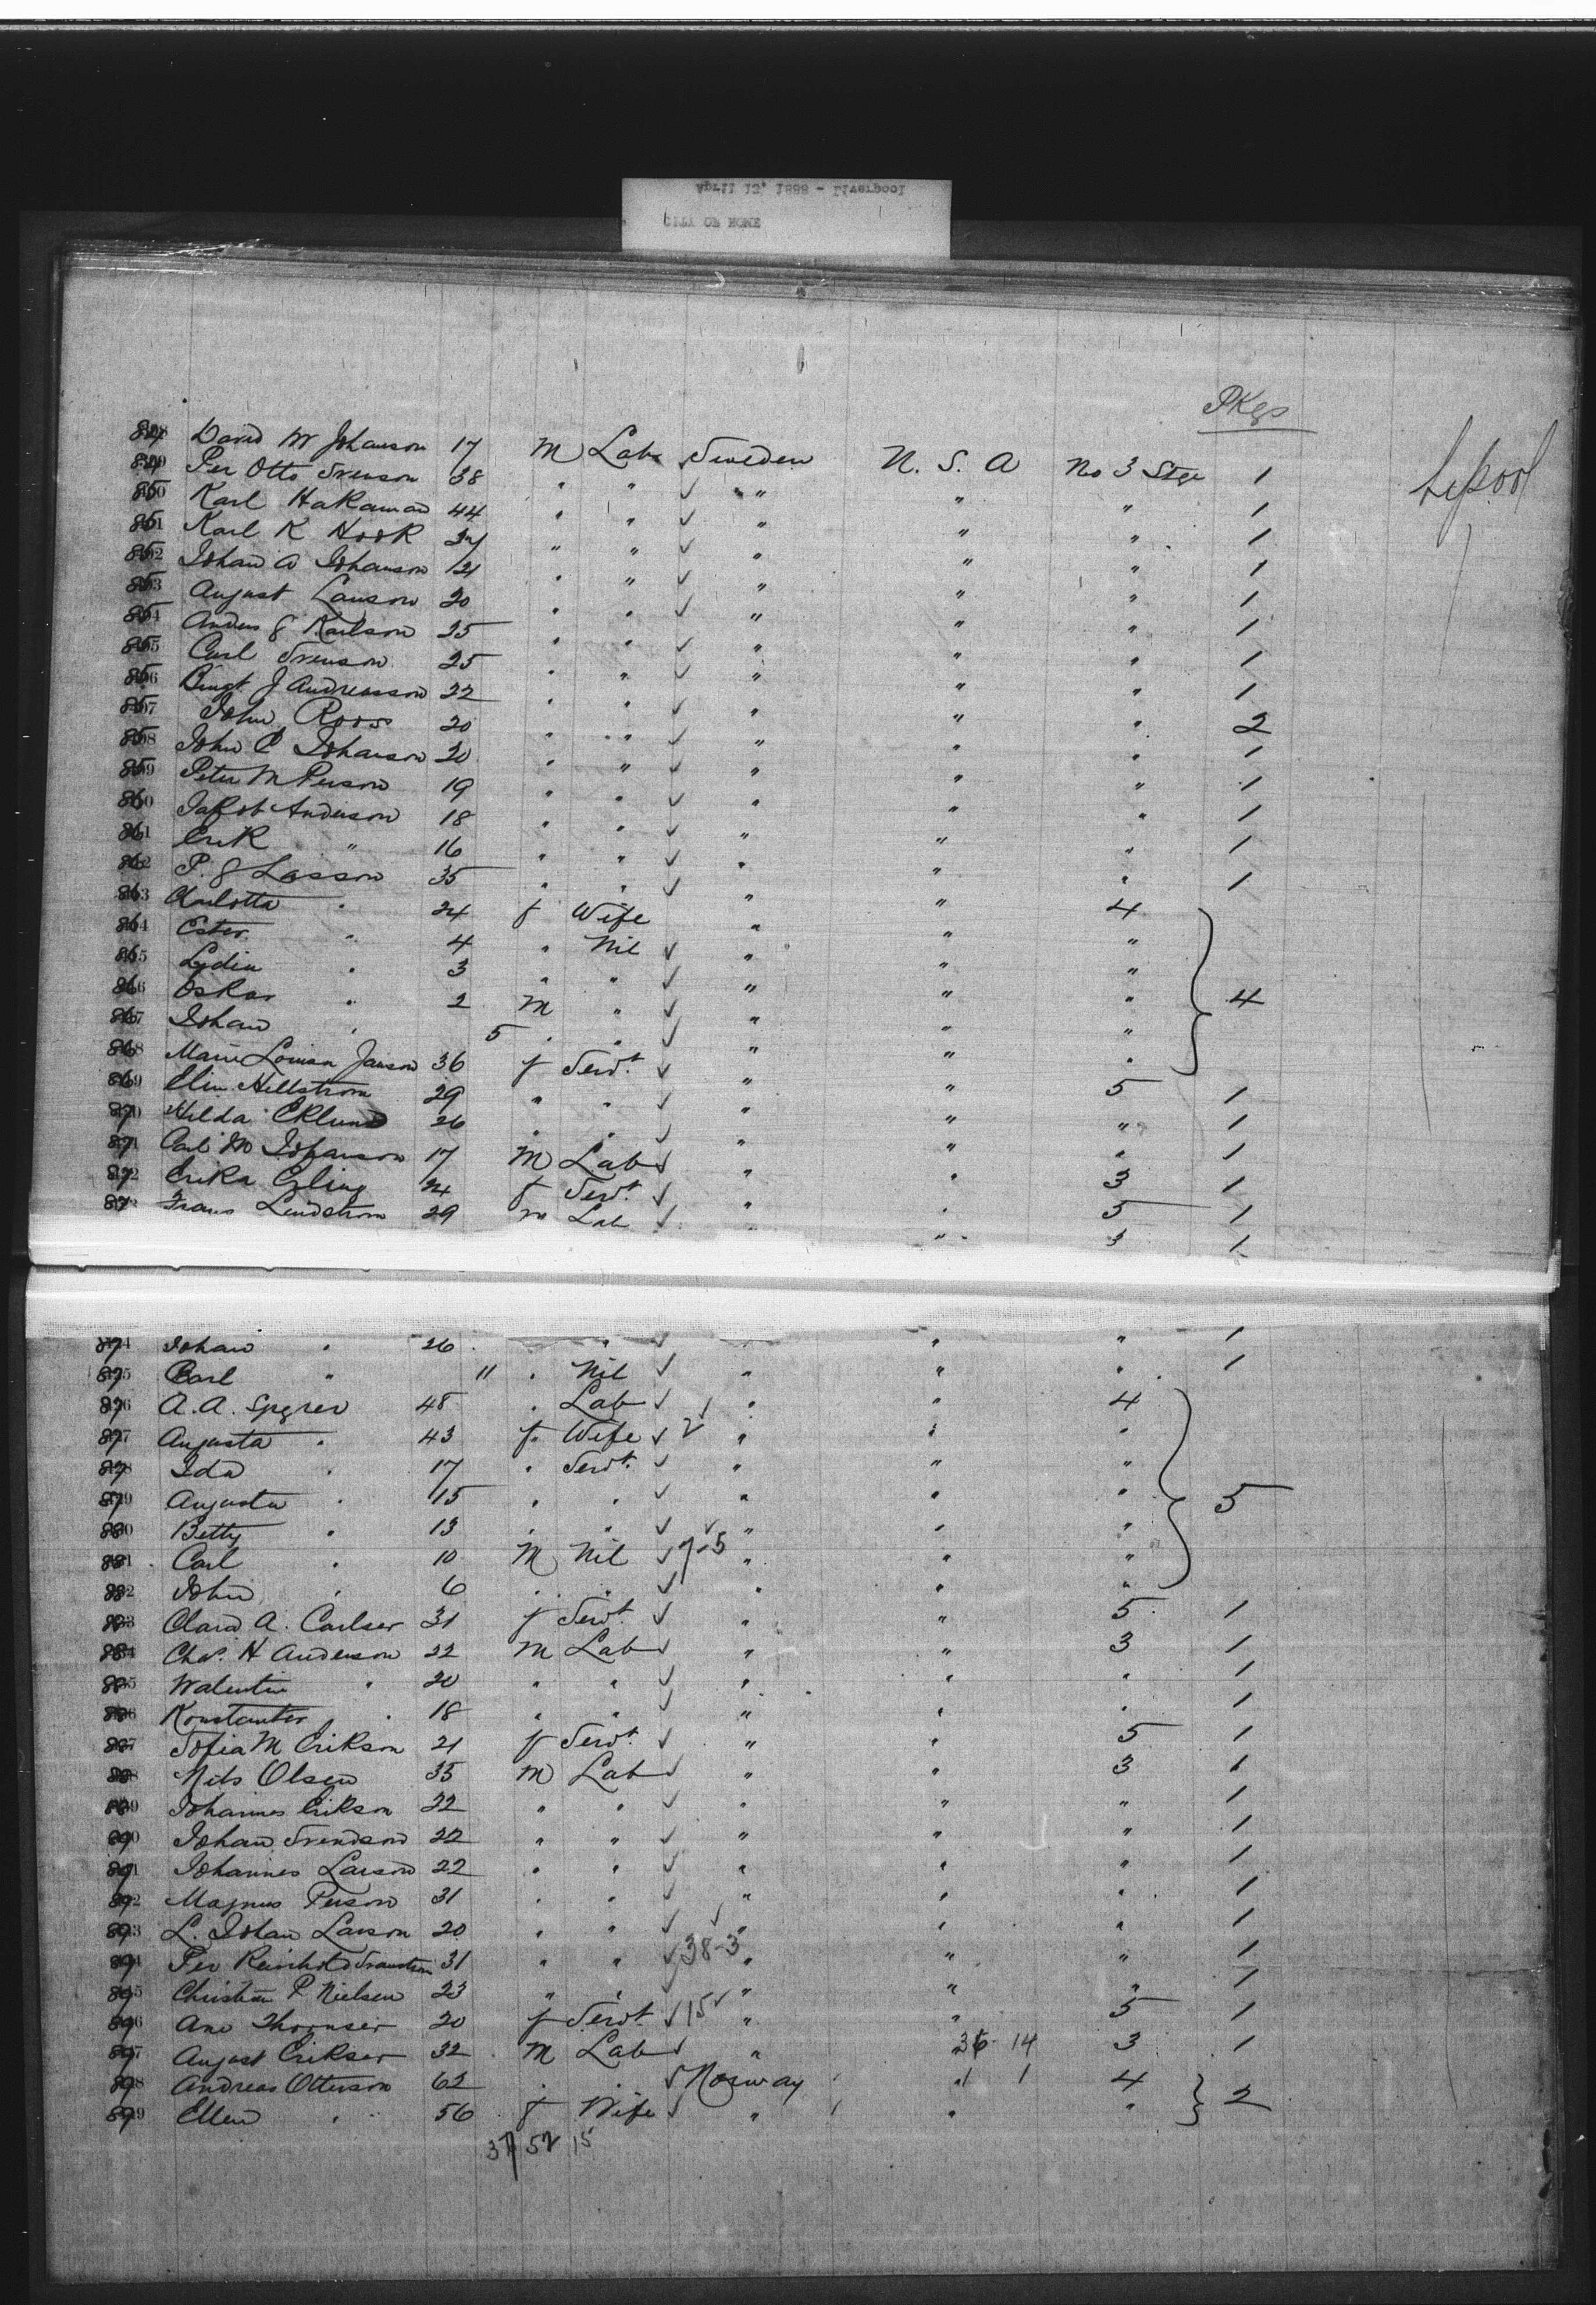 April 13, 1888 - Liverpool
CITY OF ROME
PKgs
L'pool
848 David W Johanson 17 M Lab Sweden U. S. A No 3 Stge 1
849 Per Otto Svenson 38 " " ✓ " " " 1
850 Karl Hakaman 44 " " ✓ " " " 1
851 Karl K Hook " " ✓ " " " 1
852 Johan A Johanson 21 " " ✓ " " " 1
853 August Lauson 20 " " ✓ " " " 1
854 Anders G Karlson 25 " " ✓ " " " 1
855 Carl Svenson 25 " " ✓ " " " 1
856 Bengt J Andreasson 22 " " ✓ " " " 2
857 John Roos 20 " " ✓ " " " 1
858 John P Johanson 20 " " ✓ " " " 1
859 Peter M Person 19 " " ✓ " " " 1
860 Jakob Anderson 18 " " ✓ " " " 1
861 Erik " 16 " " ✓ " " " 1
862 P. G Lasson 35 " " ✓ " " 4
863 Charlotta " 24 f Wife " " "
864 Ester " 4 " Nil ✓ " " "
865 Lydia " 3 " " ✓ " " " 4
866 Oskar " 2 M " ✓ " " "
867 Johan " 5 " " ✓ " " "
868 Marie Lovisa Janson 36 f Servt. ✓ " " 5 1
869 Elin Hellstrom 29 " " ✓ " " " 1
870 Hilda Eklund 26 " " ✓ " " " 1
871 Carl M Johanson 17 M Lab ✓ " " 3 1
872 Erika Ogling 24 f Servt. ✓ " " 5 1
873 Frans Lindstrom 29 m Lab ✓ " " 3 1
874 Johan " 26 " ✓ " " " 1
875 Carl " 11 " Nil ✓ " " " 1
876 A. A. Spgrer 48 " Lab ✓ " " 4
877 Augusta " 43 f Wife ✓ 2 " " "
878 Ida " 17 " Servt. ✓ " " "
879 Augusta " 15 " " ✓ " " " 5
880 Betty " 13 " " ✓ " " "
881 Carl " 10 M Nil ✓ 7-5 " " "
882 John " 6 " " ✓ " " "
883 Clara A. Carlser 31 f Servt. ✓ " " 5 1
884 Chas. H Anderson 22 M Lab ✓ " " 3 1
885 Walentin " 20 " " ✓ " " " 1
886 Konstanter " 18 " " ✓ " " " 1
887 Sofia M Erikson 21 f Servt. ✓ " " 5 1
888 Nils Olsen 35 M Lab ✓ " " 3 1
889 Johannes Erikson 22 " " ✓ " " " 1
890 Johan Svendson 22 " " ✓ " " " 1
891 Johannes Larson 22 " " ✓ " " " 1
892 Magnus Person 31 " " ✓ " " " 1
893 L. Johan Larson 20 " " ✓ " " " 1
894 Per Reinhold 31 " " ✓ 38-3 " " " 1
895 Christian P. Nielsen 23 " " ✓ " " " 1
896 Ane Thornser 20 f Servt ✓ 15 " " 5 1
897 August Erikser 32 M Lab ✓ " 36 14 3 1
898 Andreas Otterson 62 " " ✓ Norway 1 1 4
899 Ellen " 56 f Wife ✓ " " " 2
37 52 15